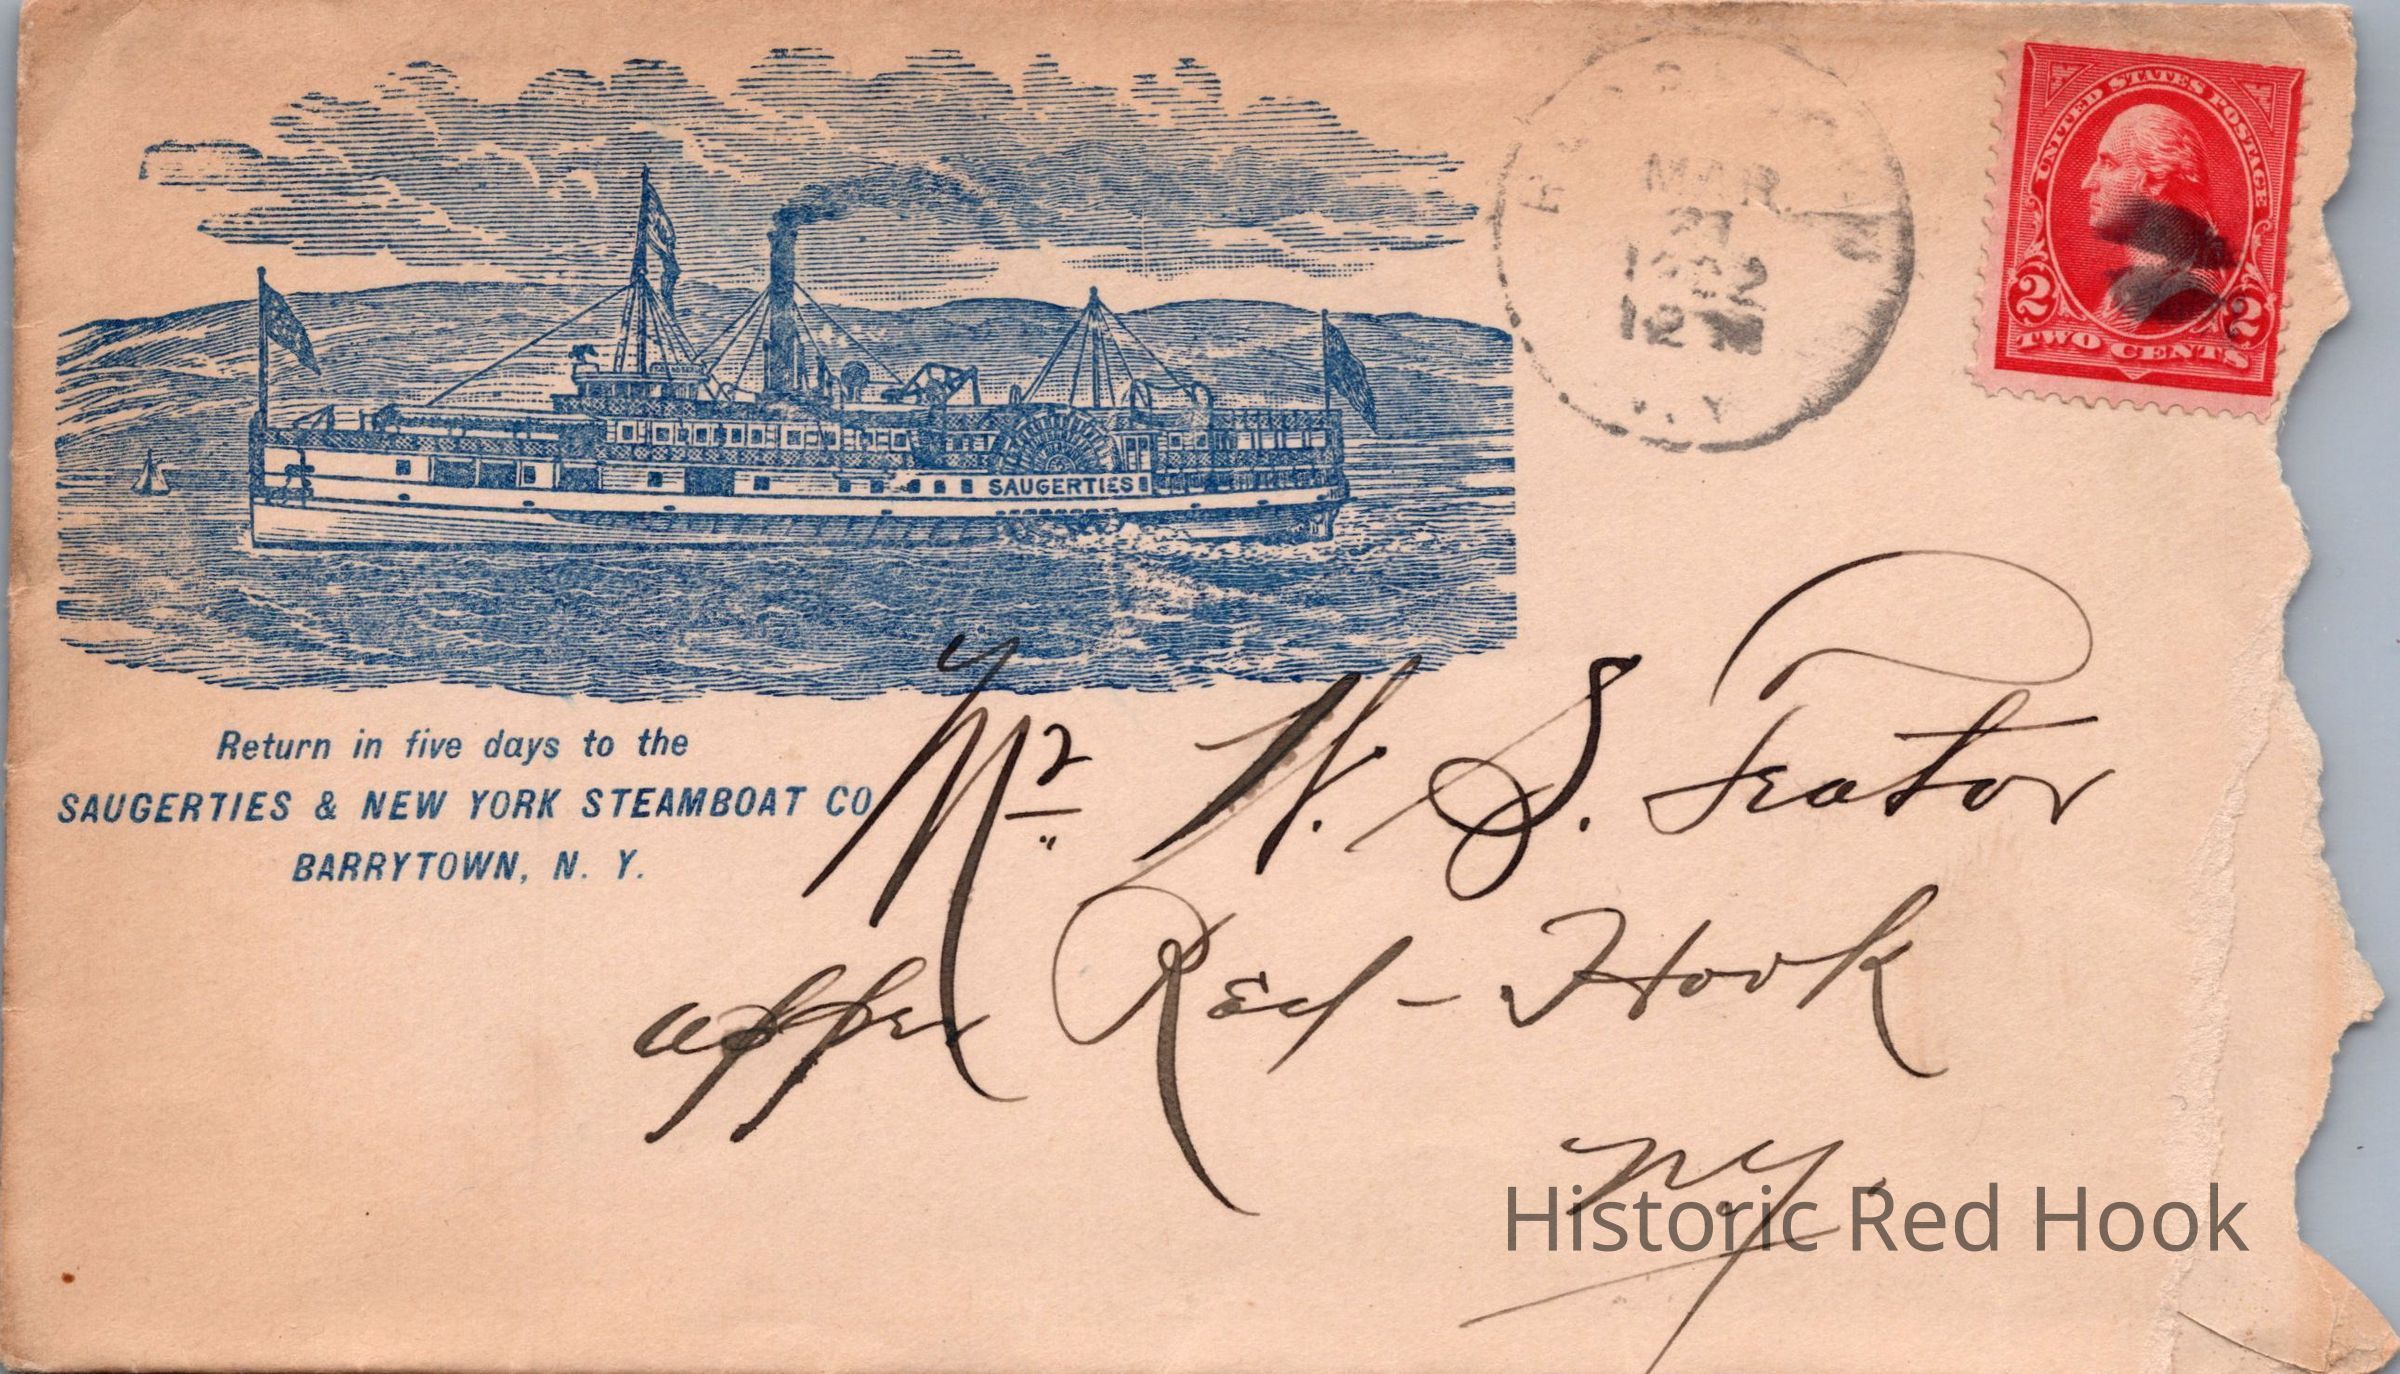 UNITED STATES POSTAGE
2 2
TWO CENTS
MAR
12 M
N.Y.
SAUGERTIES
Return in five days to the
SAUGERTIES & NEW YORK STEAMBOAT CO
BARRYTOWN, N. Y.
Mr W. S. Teator
upper Red-Hook
N.Y.
Historic Red Hook